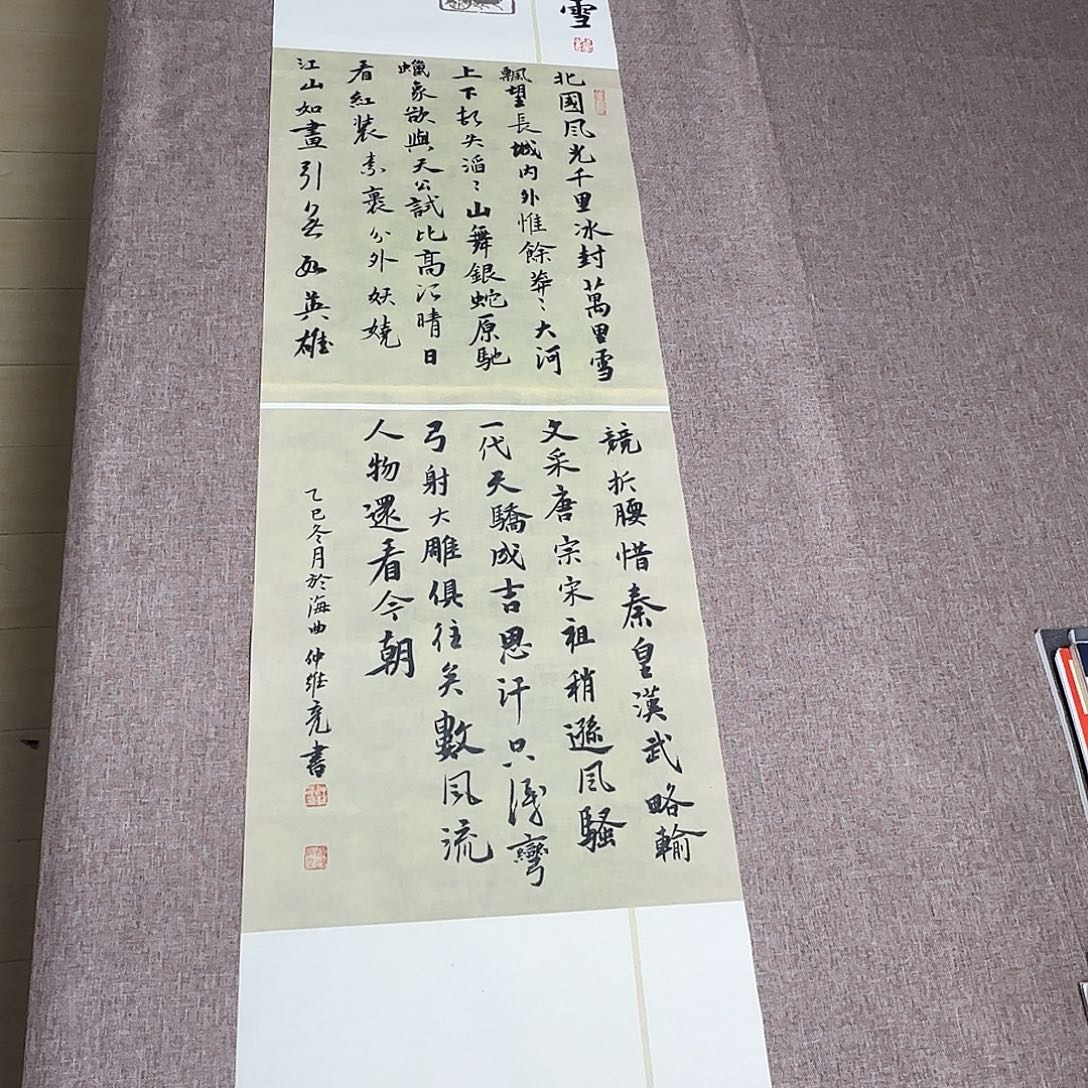 雪
北國風光千里冰封萬里雪
飄望長城內外惟餘莽〻大河
上下頓失滔〻山舞銀蛇原馳
蠟象欲與天公試比高須晴日
看紅裝素裹分外妖嬈
江山如畫引無數英雄
競折腰惜秦皇漢武略輸
文采唐宗宋祖稍遜風騷
一代天驕成吉思汗只識彎
弓射大雕俱往矣數風流
人物還看今朝
乙巳冬月於海曲仲維亮書